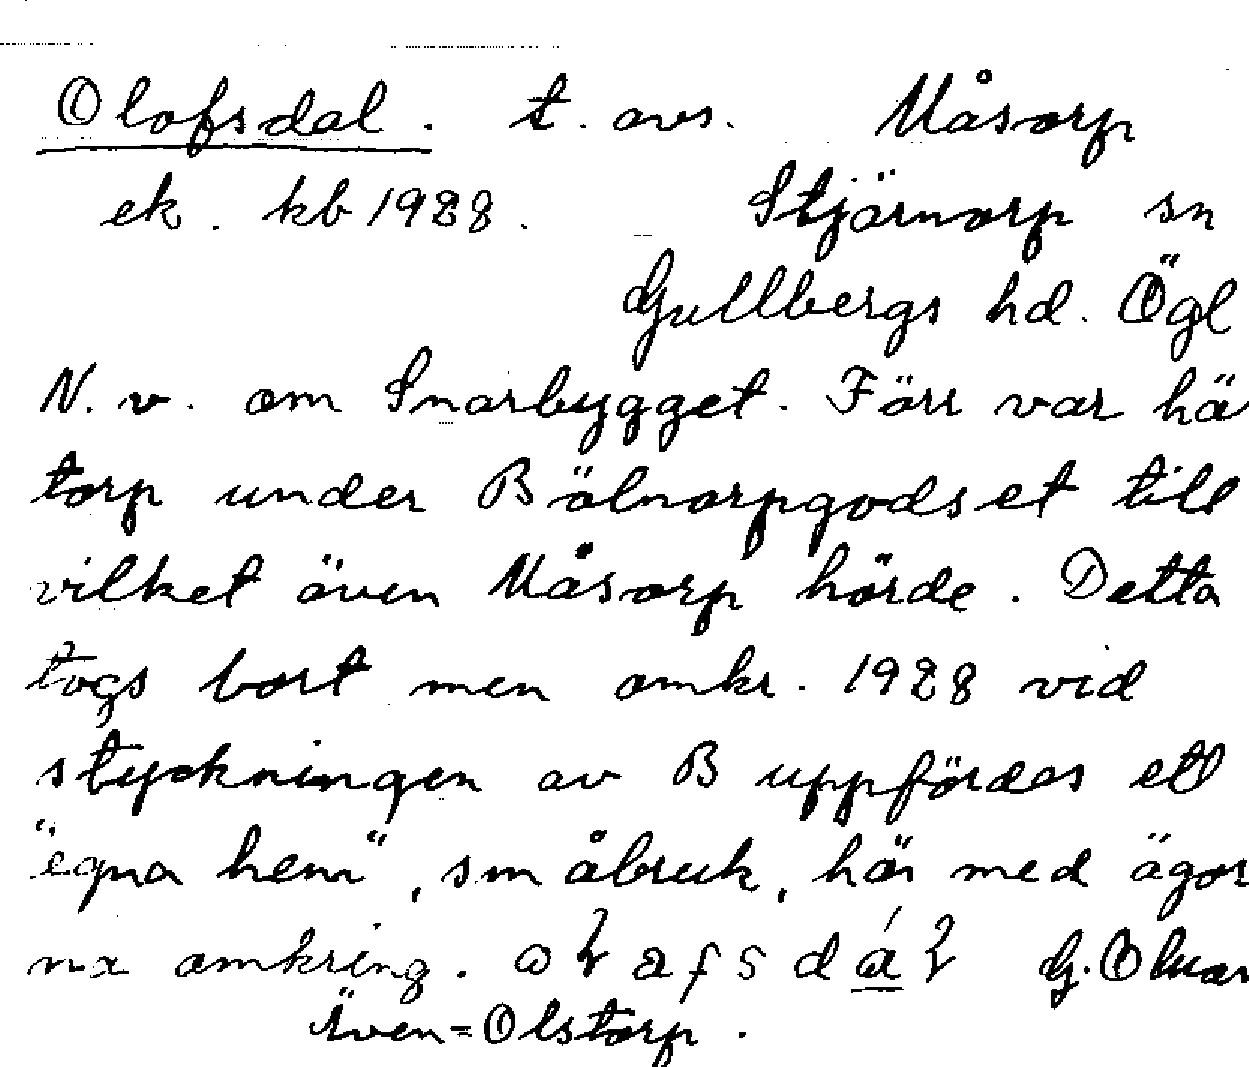 Olofsdal. t. avs. Måsorp
ek. kb 1928. Stjärnorp sn
Gullbergs hd. Ögl
N. v. om Snarbygget. Förr var hä
torp under Bölnorpgodset till
vilket även Måsorp hörde. Detta
togs bort men omkr. 1928 vid
styckningen av B uppfördes ett
"egna hem", småbruk, här med ägor
na omkring. G. Olnar
Även = Olstorp.